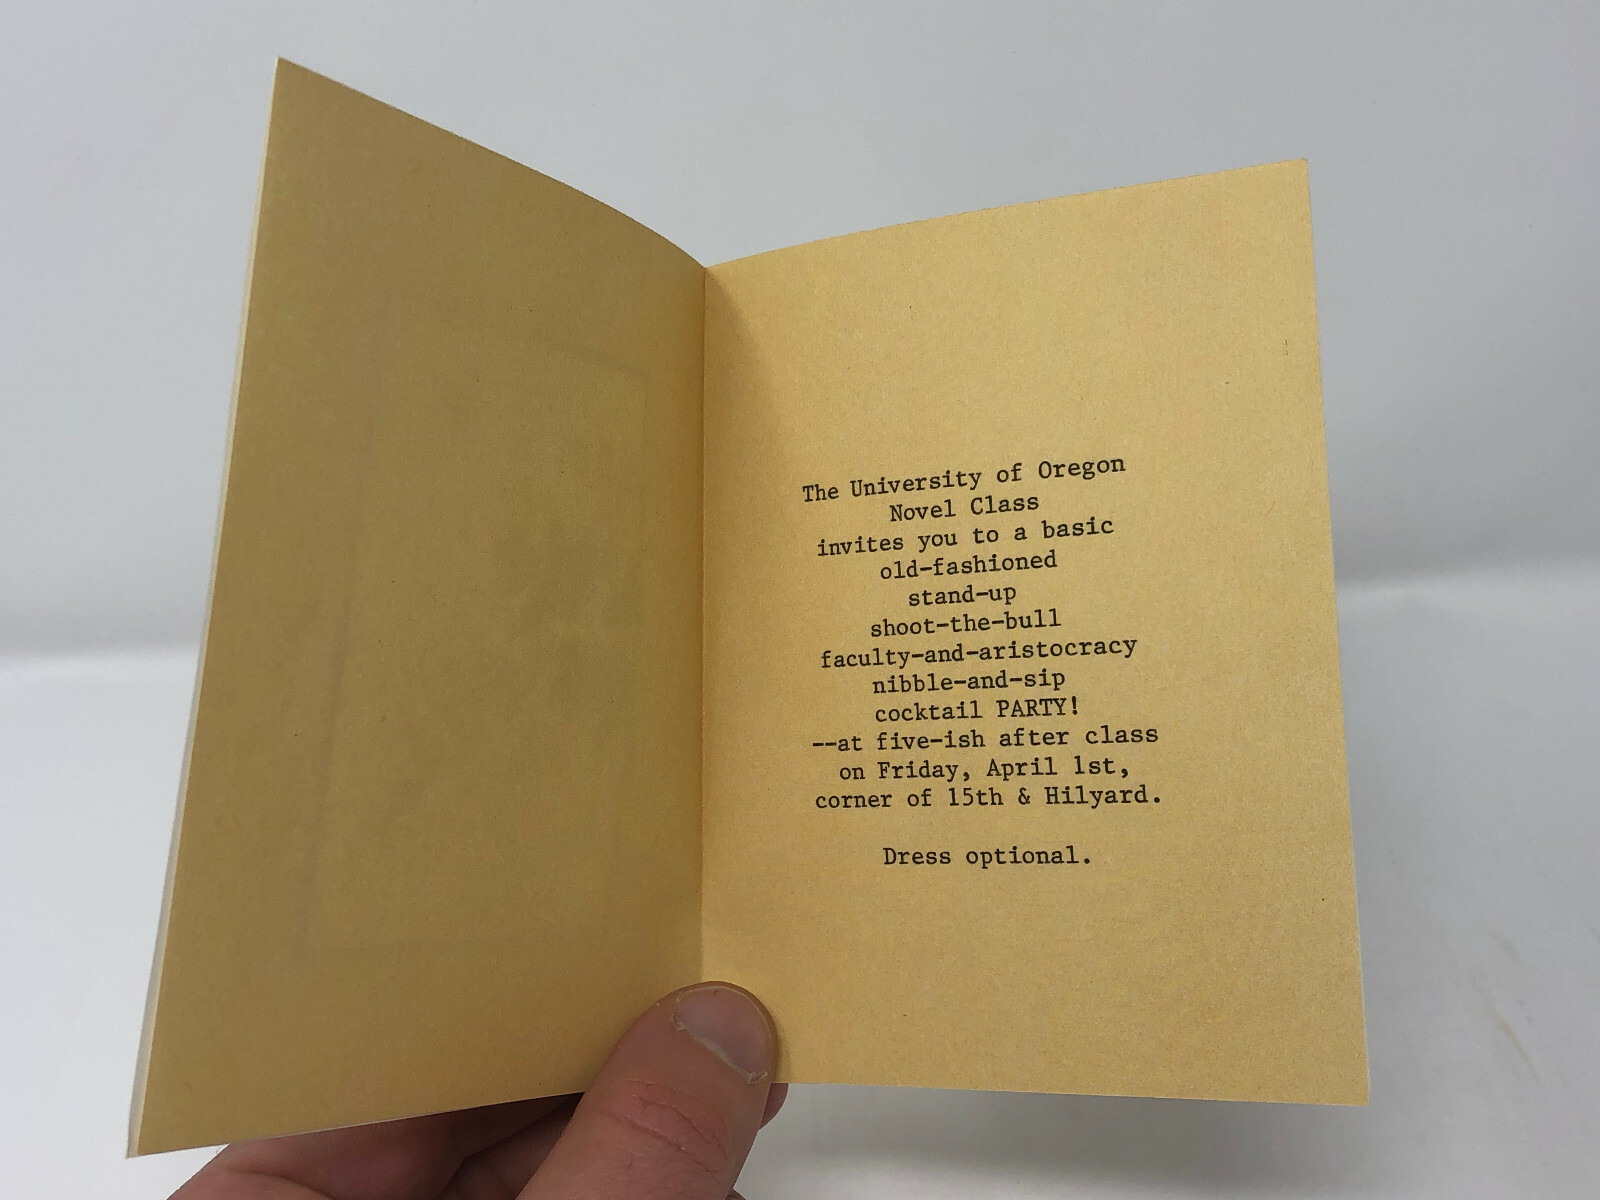 The University of Oregon
Novel Class
invites you to a basic
old-fashioned
stand-up
shoot-the-bull
faculty-and-aristocracy
nibble-and-sip
cocktail PARTY!
--at five-ish after class
on Friday, April 1st,
corner of 15th & Hilyard.
Dress optional.